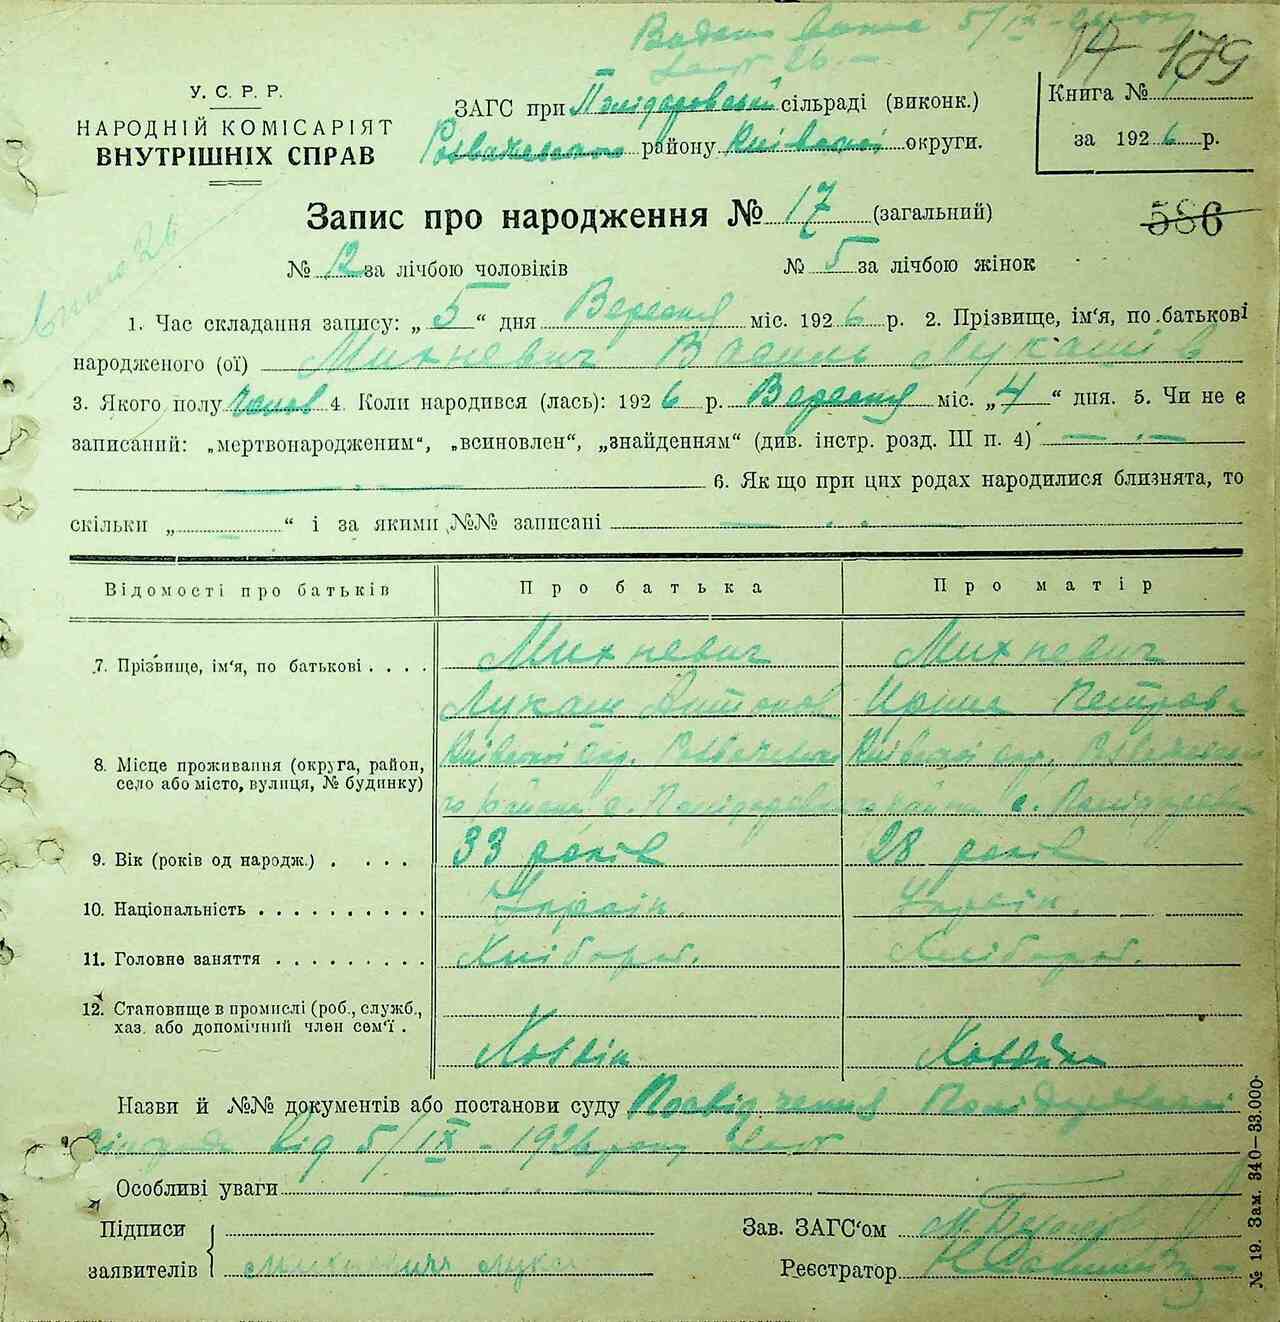 5/IX
17 179
У. С. Р. Р.
НАРОДНІЙ КОМІСАРІЯТ
ВНУТРІШНІХ СПРАВ
ЗАГС при сільраді (виконк.)
району Київської округи.
Книга № 1
за 1926 р.
586
Запис про народження № 17 (загальний)
№ 12 за лічбою чоловіків № 5 за лічбою жінок
1. Час складання запису: „5“ дня Вересня міс. 1926 р. 2. Прізвище, ім'я, по батькові
народженого (ої) Михневич Василь Лукашів
3. Якого полу 4. Коли народився (лась): 1926 р. Вересня міс. „4“ дня. 5. Чи не є
записаний: „мертвонародженим“, „всиновлен“, „знайденням“ (див. інстр. розд. III п. 4) —
6. Як що при цих родах народилися близнята, то
скільки „ “ і за якими №№ записані
Відомості про батьків Про батька Про матір
7. Прізвище, ім'я, по батькові Михневич Михневич
Лукаш Антонов
8. Місце проживання (округа, район,
село або місто, вулиця, № будинку)
9. Вік (років од народж.) 33 років 28 років
10. Національність Україн. Україн.
11. Головне заняття Хлібороб. Хлібороб.
12. Становище в промислі (роб., служб.,
хаз. або допомічний член сем'ї.
Хозяїн Хозяйка
Назви й №№ документів або постанови суду Посвідчення
від 5/IX - 1926 року
Особливі уваги
Підписи
заявителів
Зав. ЗАГС'ом
Реєстратор
№ 19. Зам. 340—33.000·